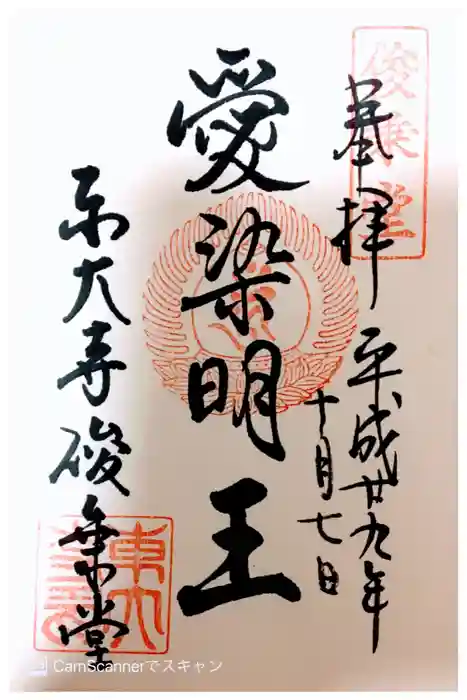 俊乗堂
奉拝
平成廿九年
十月七日
愛染明王
東大寺俊乗堂
CamScannerでスキャン